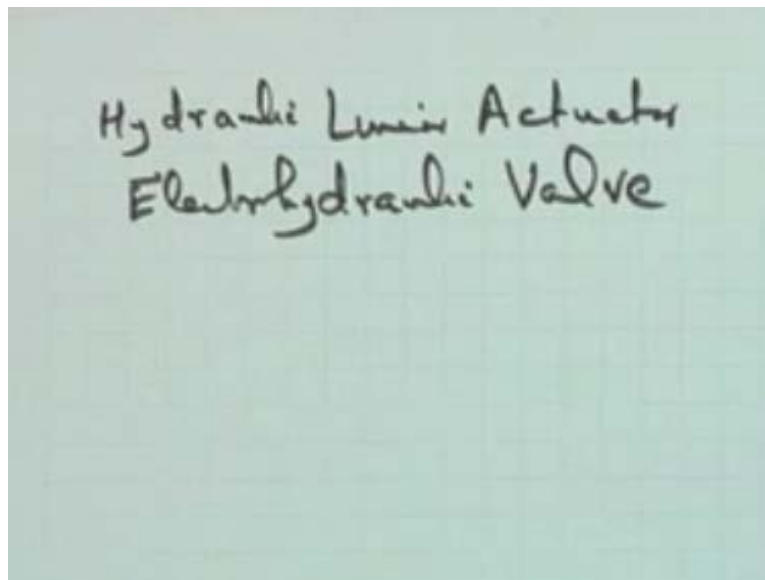 Hydraulic Linear Actuator
Electrohydraulic Valve